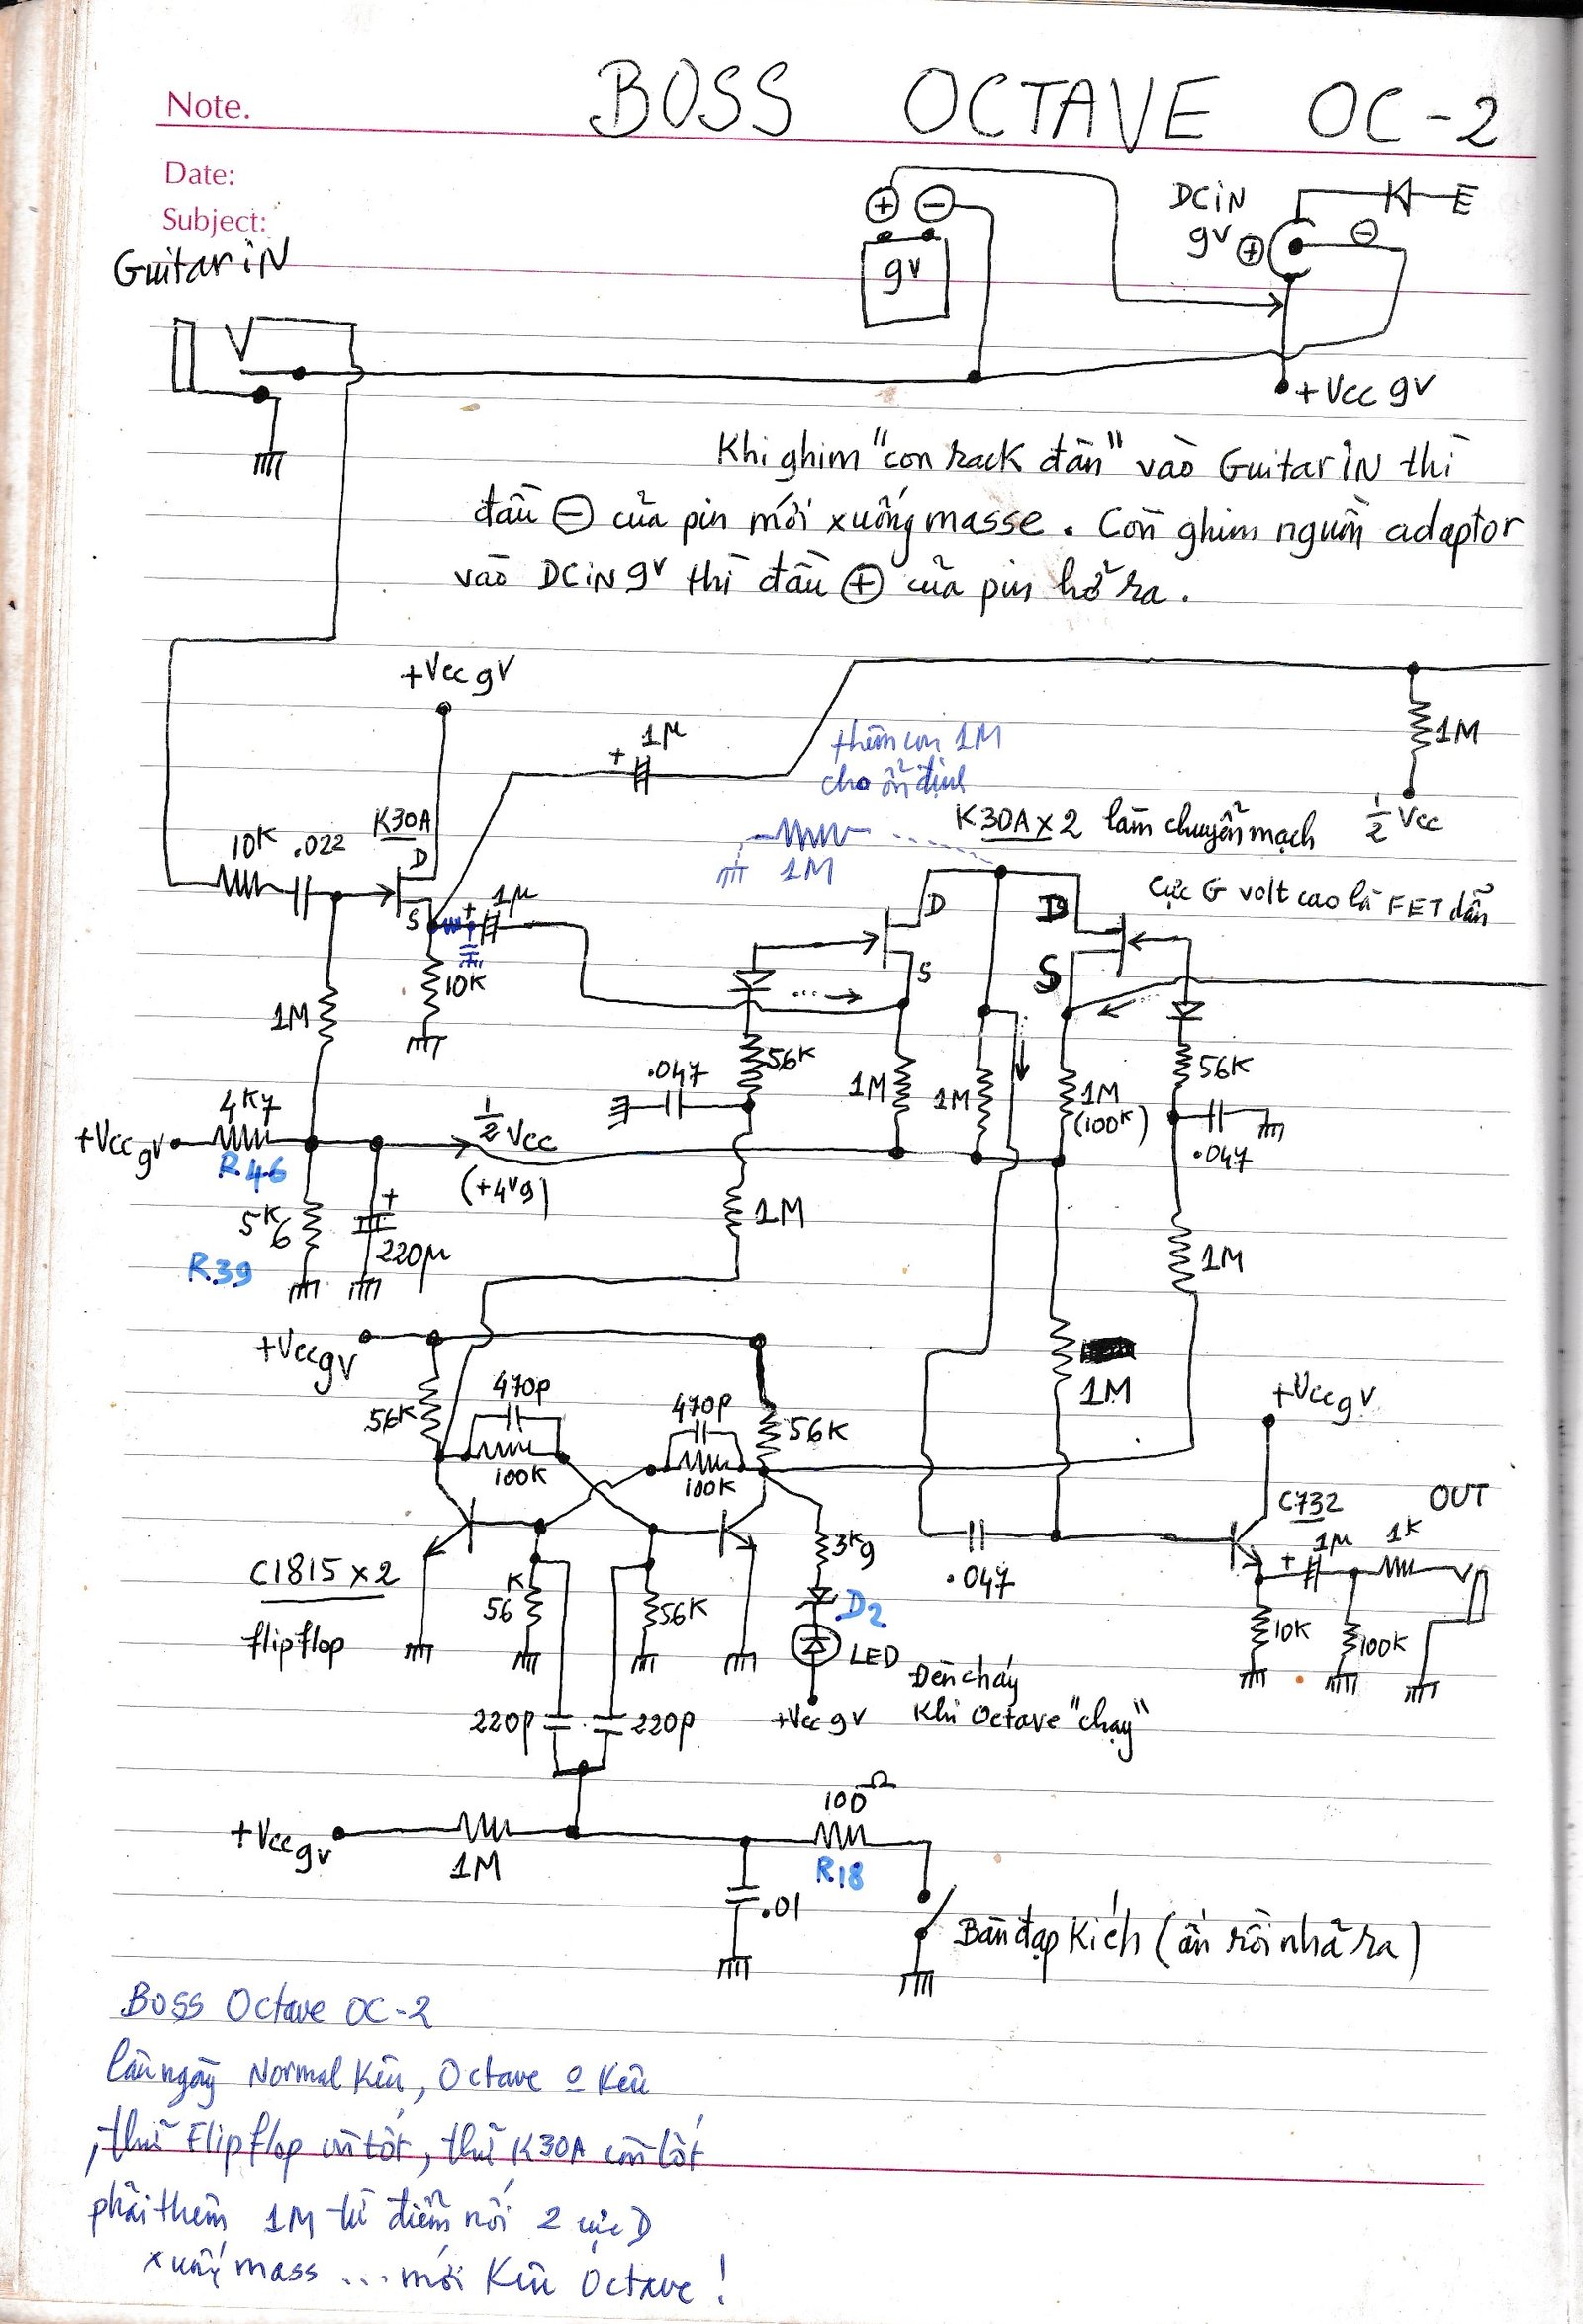 Note.
BOSS OCTAVE OC-2
Date:
Subject:
Guitar iN
+ −
9V
DCiN
9V +
−
E
+Vcc 9V
Khi ghim "con rack đàn" vào Guitar iN thì
đầu ⊖ của pin mới xuống masse. Còn ghim nguồn adaptor
vào DCiN 9V thì đầu ⊕ của pin hở ra.
+Vcc 9V
+ 1µ
thêm con 1M
cho ổn định
1M
1M
½ Vcc
K30A x 2 làm chuyển mạch
Cực G volt cao là FET dẫn
10K .022
K30A
D
S
+ 1µ
10K
1M
D
S
D
S
56K
.047
1M
1M
1M
(100K)
56K
.047
+Vcc 9V
4K7
R46
½ Vcc
(+4V9)
5K6
R39
+
220µ
1M
1M
+Vcc 9V
56K
470p
100K
470p
100K
56K
1M
+Vcc 9V
C732
OUT
+ 1µ
1K
10K
100K
.047
C1815 x 2
flip flop
56K
56K
3K9
D2
LED
+Vcc 9V
Đèn cháy
Khi Octave "chạy"
220p
220p
+Vcc 9V
1M
100Ω
R18
.01
Bàn đạp Kích (ấn rồi nhả ra)
BOSS Octave OC-2
lâu ngày Normal Kêu, Octave o Kêu
, thử Flip flop còn tốt, thử K30A còn tốt
phải thêm 1M từ điểm nối 2 cực D
xuống mass ... mới Kêu Octave !